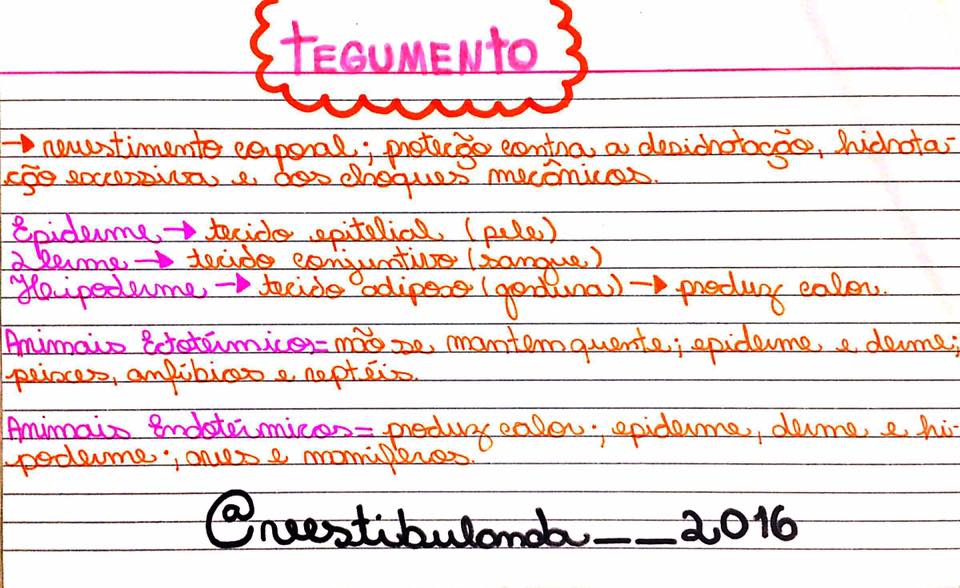 TEGUMENTO
→ revestimento corporal; proteção contra a desidratação, hidrata-
ção excessiva e dos choques mecânicos.
Epiderme → tecido epitelial (pele)
Derme → tecido conjuntivo (sangue)
Hipoderme → tecido adiposo (gordura) → produz calor.
Animais Ectotérmicos = não se mantem quente; epiderme e derme;
peixes, anfíbios e reptéis.
Animais Endotérmicos = produz calor; epiderme, derme e hi-
poderme; aves e mamíferos.
@vestibulanda__2016